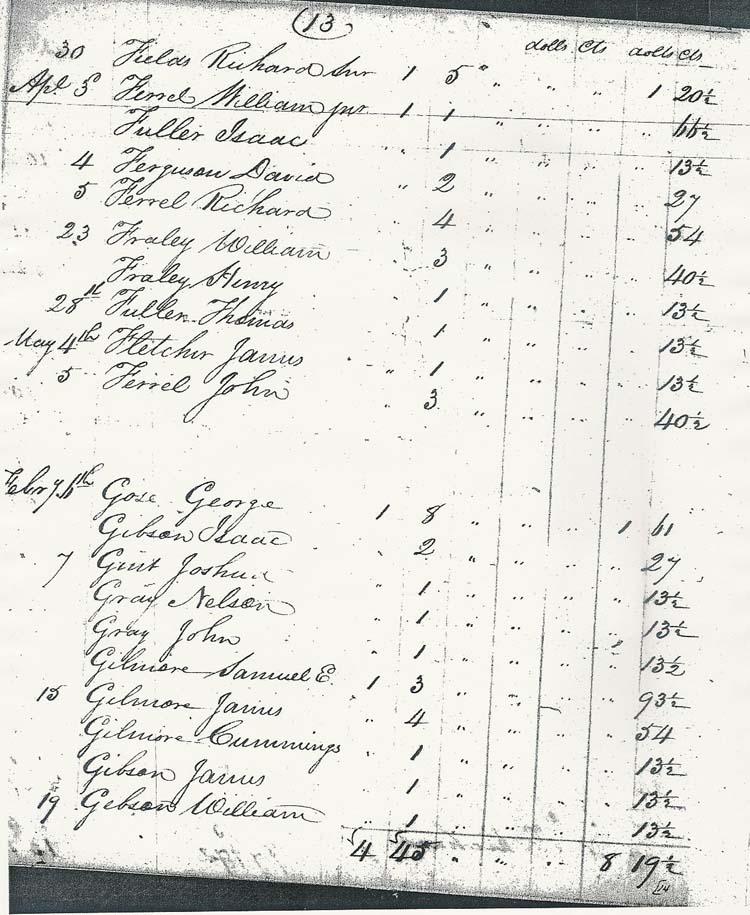 13
dolls Cts dolls Cts
30 Fields Richard Snr 1 5 " " " " 1 20½
Apl 3 Ferrel William jnr 1 1 " " " " " 66½
Fuller Isaac " 1 " " " " " 13½
4 Ferguson David " 2 " " " " " 27
5 Ferrel Richard " 4 " " " " " 54
23 Fraley William " 3 " " " " " 40½
Fraley Henry " 1 " " " " " 13½
28th Fuller Thomas " 1 " " " " " 13½
May 4th Fletcher James " 1 " " " " " 13½
5 Ferrel John " 3 " " " " " 40½
Febry 6th Gose George 1 8 " " " " 1 61
Gibson Isaac " 2 " " " " " 27
7 Gent Joshua " 1 " " " " " 13½
Gray Nelson " 1 " " " " " 13½
Gray John " 1 " " " " " 13½
Gilmore Samuel E. 1 3 " " " " " 93½
15 Gilmore James " 4 " " " " " 54
Gilmore Cummings " 1 " " " " " 13½
Gibson James " 1 " " " " " 13½
19 Gebson William " 1 " " " " " 13½
4 45 " " " " 8 19½